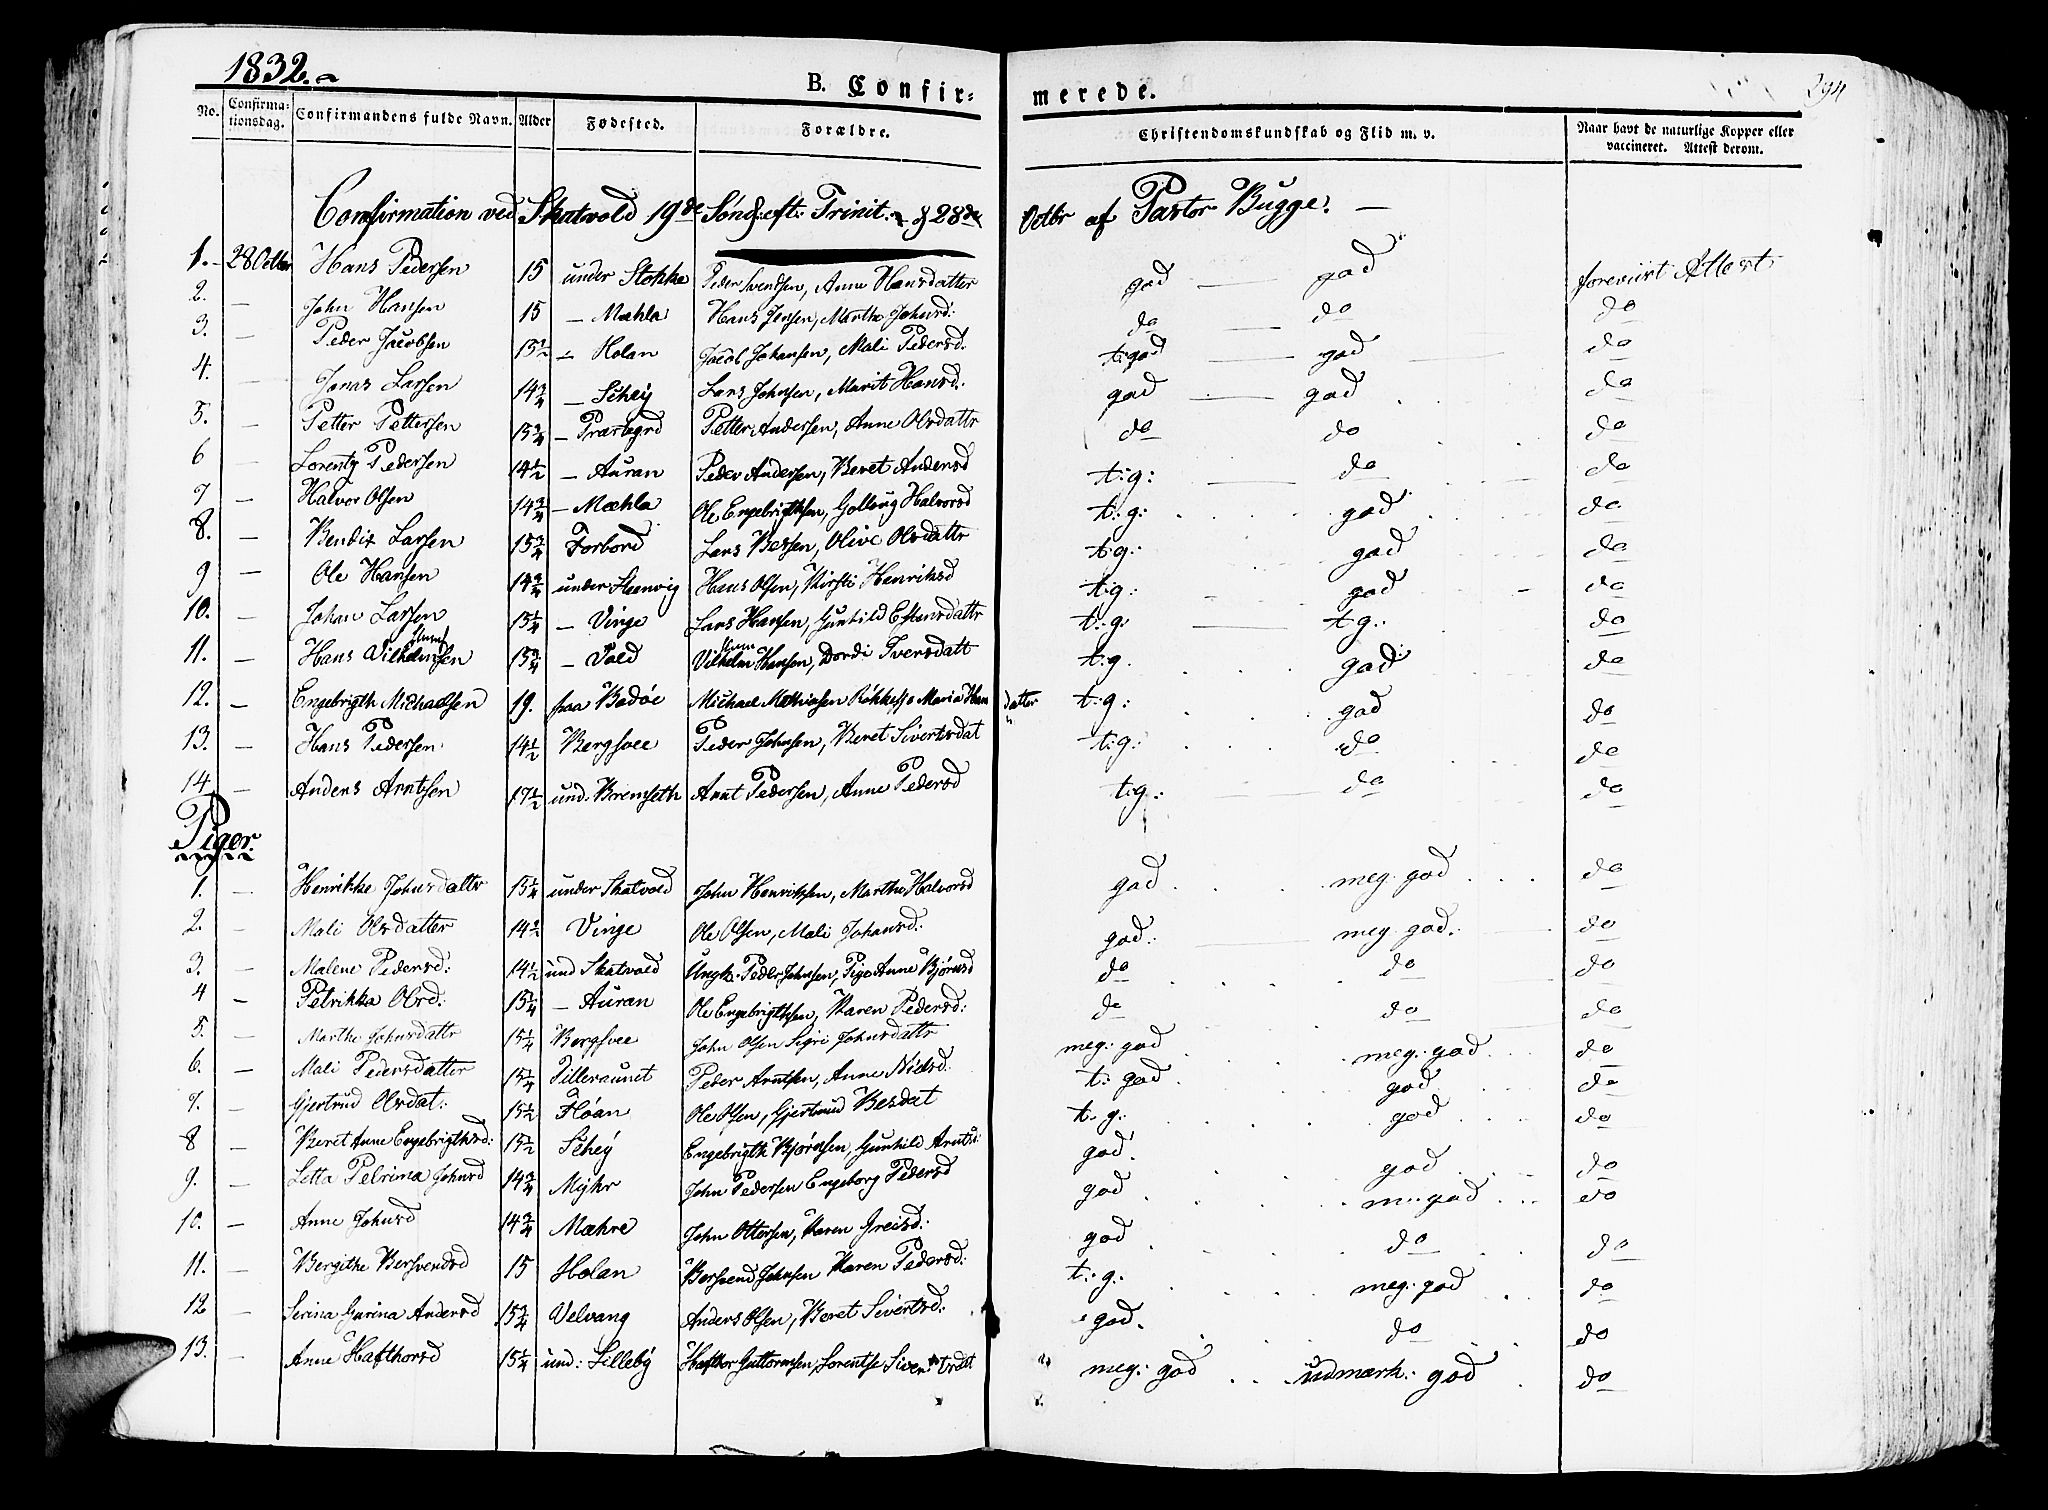 1832.
B. Confir-
merede.
294
No.
Confirma-
tionsdag.
Confirmandens fulde Navn.
Alder
Fødested.
Forældre.
Christendomskundskab og Flid m. v.
Naar havt de naturlige Kopper eller
vaccineret. Attest derom.
Confirmation ved Skatvold 19de Sønd: eft: Trinit: d 28de Octbr af Pastor Bugge.
1. 28 Octbr Hans Pedersen 15 under Stokke Peder Svendsen, Anne Hansdatter god god foreviist Attest
2. — John Hansen 15 — Mæhla Hans Jensen, Marthe Johnsd: do do do
3. — Peder Jacobsen 15½ — Holan Jacob Johansen, Mali Pedersd. t: god god do
4. — Jonas Larsen 14¾ — Schey Lars Johnsen, Marit Hansd: god god do
5. — Petter Pettersen 15¾ — Præstegrd Petter Andersen, Anne Olsdattr do do do
6 — Lorentz Pedersen 14½ — Auran Peder Andersen, Beret Andersd t: g: do do
7 — Halvor Olsen 14¾ — Mæhla Ole Engebrigthsen, Gollaug Halvorsd t: g: god do
8. — Bendix Larsen 15¾ Forbord Lars Bersen, Olive Olsdattr t: g: god do
9 — Ole Hansen 14¾ under Steenvig Hans Olsen, Kirsti Henriksd t: g: god do
10. — Johan Larsen 15¼ — Vinge Lars Hansen, Gunhild Estensdattr t: g: t: g: do
11. — Hans Vilhelmsen 15¾ — Vold Vilhelm Hansen, Dordi Iversdatt t: g. god do
12. — Engebrigth Michaelsen 19. fra Bodøe Michael Mathiasen Røkkesja Maria Hans datter t: g: god do
13. — Hans Pedersen 14½ Bergsvee Peder Johnsen, Beret Sivertsdat t: g: do do
14. Anders Arntsen 17½ und. Bremseth Arnt Pedersen, Anne Pedersd t: g: do do
Piger.
1. — Henrikke Johnsdattr 15¼ under Skatvold John Henriksen, Marthe Halvorsd god meg. god do
2. — Mali Olsdatter 14½ Vinge Ole Olsen, Mali Johansd: god: meg god: do
3. — Malene Pedersd: 14½ und Skatvold Ungk. Peder Johnsen, Pige Anne Bjørnsd do do do
4 — Petrikka Olsd: 15¼ — Auran Ole Engebrigthsen, Karen Pedersd: do do do
5. — Marthe Johnsdattr 15¼ Bergsvee John Olsen Sigri Johnsdattr meg: god meg: god do
6. — Mali Pedersdatter 15¼ Tilleraunet Peder Arntsen, Anne Nielsd. t: god god do
7. — Gjertrud Olsdat: 15½ Fløan Ole Olsen, Gjertrud Besdat t. g: god do
8 — Beret Anne Engebrigthsd: 15½ Schey Engebrigth Bjørnsen, Gunhild Arntsd: god. god do
9. — Letta Petrina Johnsd 14¾ Myhr John Pedersen Engeborg Pedersd god m: god do
10. — Anne Johnsd 14¾ Mæhre John Ottersen, Karen Greisd: god do do
11. — Bergithe Bersvendsd 15 Holan Bersvend Johnsen Karen Pedersd: t: g: meg: god do
12 — Serina Gurina Andersd 15¾ Velvang Anders Olsen, Beret Sivertsd: god. do do
13. — Anne Hafthorsd 15¼ und: Lilleby Hafthor Guttormsen, Lorentse meg: god udmærk: god do